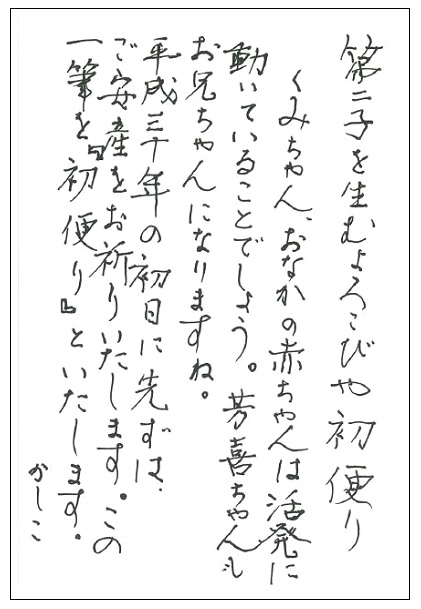 第二子を生むよろこびや初便り
くみちゃん、おなかの赤ちゃんは活発に
動いていることでしょう。芳喜ちゃんも
お兄ちゃんになりますね。
平成三十年の初日に先ずは、
ご安産をお祈りいたします。この
一筆を『初便り』といたします。
かしこ